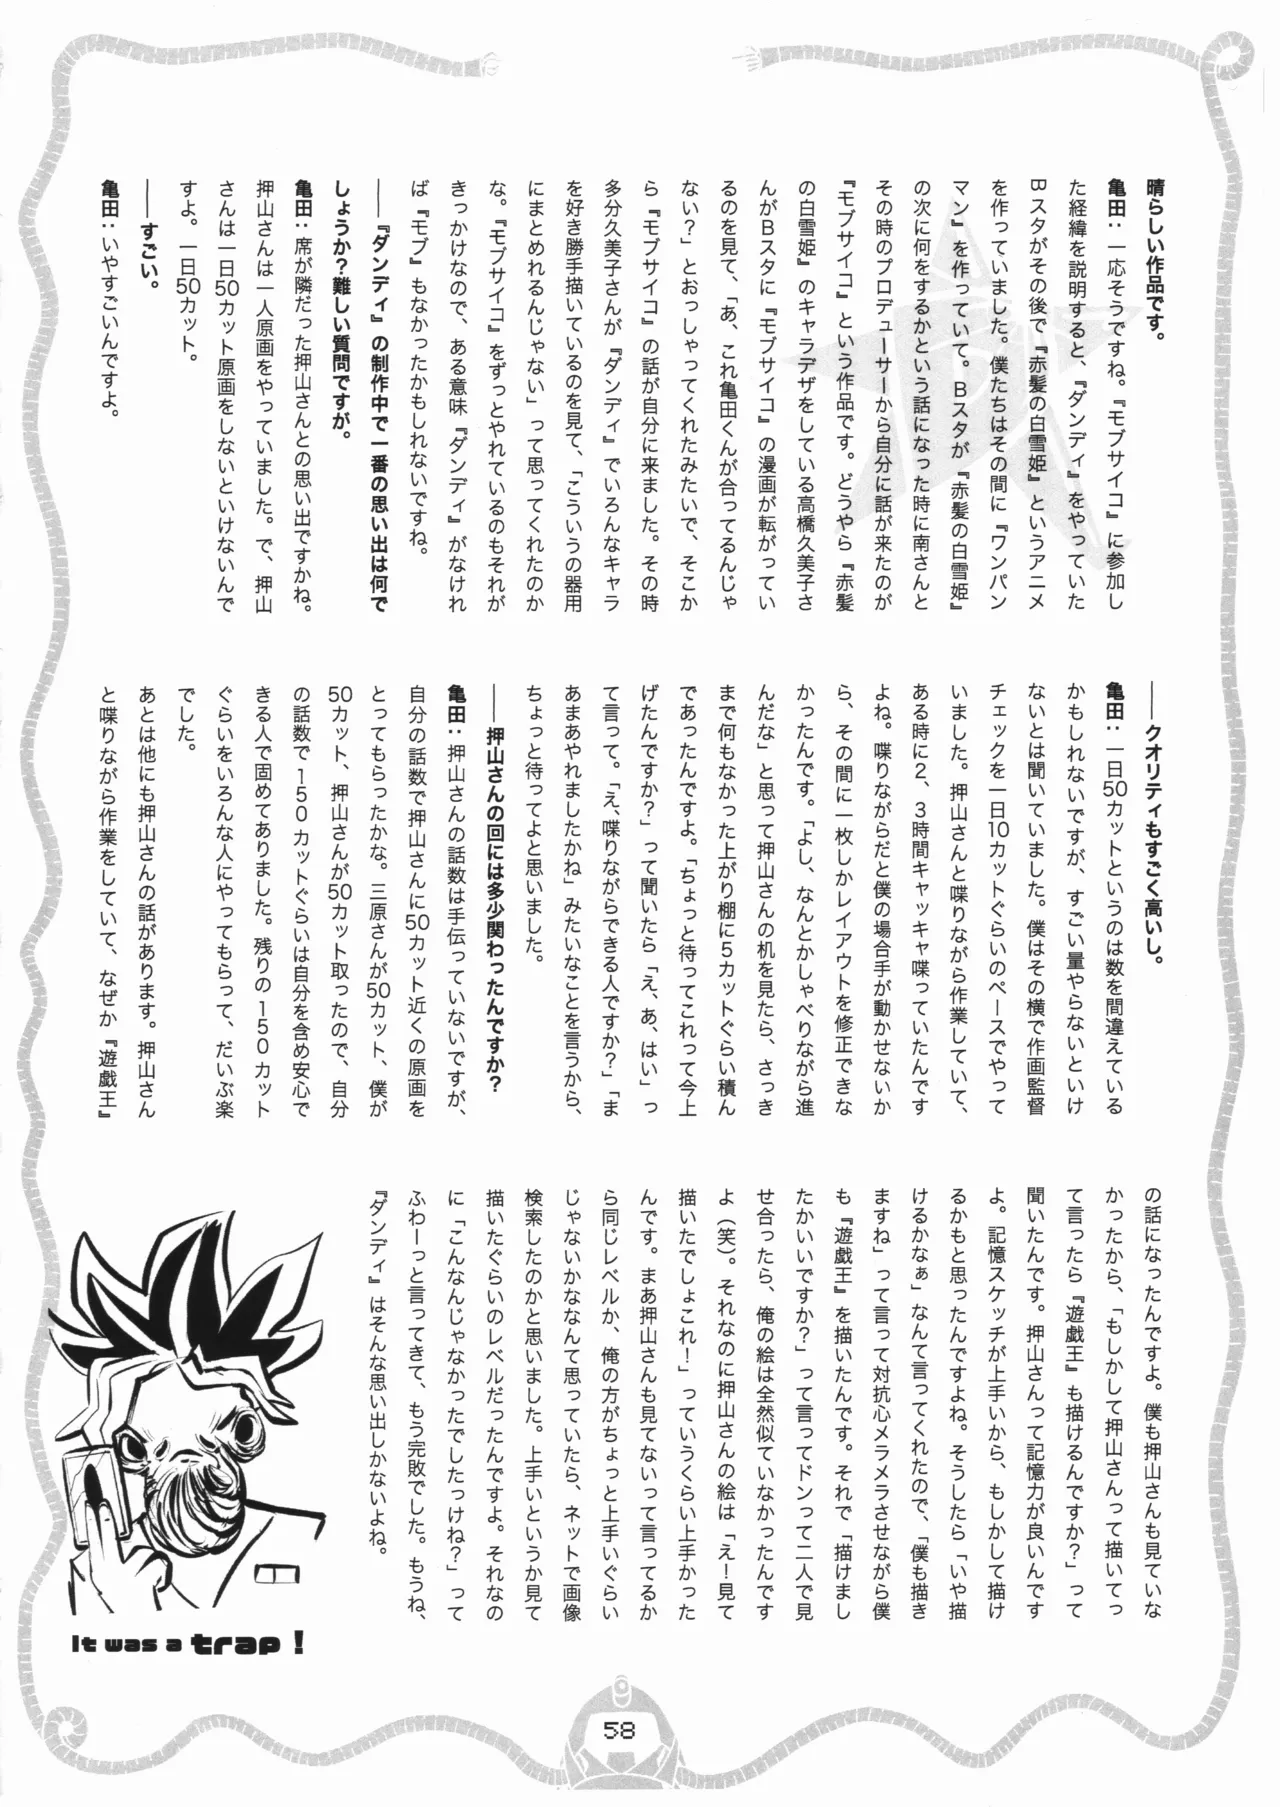 晴らしい作品です。
亀田：一応そうですね。『モブサイコ』に参加し
た経緯を説明すると、『ダンディ』をやっていた
Bスタがその後で『赤髪の白雪姫』というアニメ
を作っていました。僕たちはその間に『ワンパン
マン』を作っていて。Bスタが『赤髪の白雪姫』
の次に何をするかという話になった時に南さんと
その時のプロデューサーから自分に話が来たのが
『モブサイコ』という作品です。どうやら『赤髪
の白雪姫』のキャラデザをしている高橋久美子さ
んがBスタに『モブサイコ』の漫画が転がってい
るのを見て、「あ、これ亀田くんが合ってるんじゃ
ない？」とおっしゃってくれたみたいで、そこか
ら『モブサイコ』の話が自分に来ました。その時
多分久美子さんが『ダンディ』でいろんなキャラ
を好き勝手描いているのを見て、「こういうの器用
にまとめれるんじゃない」って思ってくれたのか
な。『モブサイコ』をずっとやれているのもそれが
きっかけなので、ある意味『ダンディ』がなけれ
ば『モブ』もなかったかもしれないですね。
──『ダンディ』の制作中で一番の思い出は何で
しょうか？難しい質問ですが。
亀田：席が隣だった押山さんとの思い出ですかね。
押山さんは一人原画をやっていました。で、押山
さんは一日50カット原画をしないといけないんで
すよ。一日50カット。
──すごい。
亀田：いやすごいんですよ。
──クオリティもすごく高いし。
亀田：一日50カットというのは数を間違えている
かもしれないですが、すごい量やらないといけ
ないとは聞いていました。僕はその横で作画監督
チェックを一日10カットぐらいのペースでやって
いました。押山さんと喋りながら作業していて、
ある時に2、3時間キャッキャ喋っていたんです
よね。喋りながらだと僕の場合手が動かせないか
ら、その間に一枚しかレイアウトを修正できな
かったんです。「よし、なんとかしゃべりながら進
んだな」と思って押山さんの机を見たら、さっき
まで何もなかった上がり棚に5カットぐらい積ん
であったんですよ。「ちょっと待ってこれって今上
げたんですか？」って聞いたら「え、あ、はい」っ
て言って。「え、喋りながらできる人ですか？」「ま
あまあやれましたかね」みたいなことを言うから、
ちょっと待ってよと思いました。
──押山さんの回には多少関わったんですか？
亀田：押山さんの話数は手伝っていないですが、
自分の話数で押山さんに50カット近くの原画を
とってもらったかな。三原さんが50カット、僕が
50カット、押山さんが50カット取ったので、自分
の話数で150カットぐらいは自分を含め安心で
きる人で固めてありました。残りの150カット
ぐらいをいろんな人にやってもらって、だいぶ楽
でした。
あとは他にも押山さんの話があります。押山さん
と喋りながら作業をしていて、なぜか『遊戯王』
の話になったんですよ。僕も押山さんも見ていな
かったから、「もしかして押山さんって描いてっ
て言ったら『遊戯王』も描けるんですか？」って
聞いたんです。押山さんって記憶力が良いんです
よ。記憶スケッチが上手いから、もしかして描け
るかもと思ったんですよね。そうしたら「いや描
けるかなぁ」なんて言ってくれたので、「僕も描き
ますね」って言って対抗心メラメラさせながら僕
も『遊戯王』を描いたんです。それで「描けまし
たかいいですか？」って言ってドンって二人で見
せ合ったら、俺の絵は全然似ていなかったんです
よ（笑）。それなのに押山さんの絵は「え！見て
描いたでしょこれ！」っていうくらい上手かった
んです。まあ押山さんも見てないって言ってるか
ら同じレベルか、俺の方がちょっと上手いぐらい
じゃないかななんて思っていたら、ネットで画像
検索したのかと思いました。上手いというか見て
描いたぐらいのレベルだったんですよ。それなの
に「こんなんじゃなかったでしたっけね？」って
ふわーっと言ってきて、もう完敗でした。もうね、
『ダンディ』はそんな思い出しかないよね。
It was a trap !
58